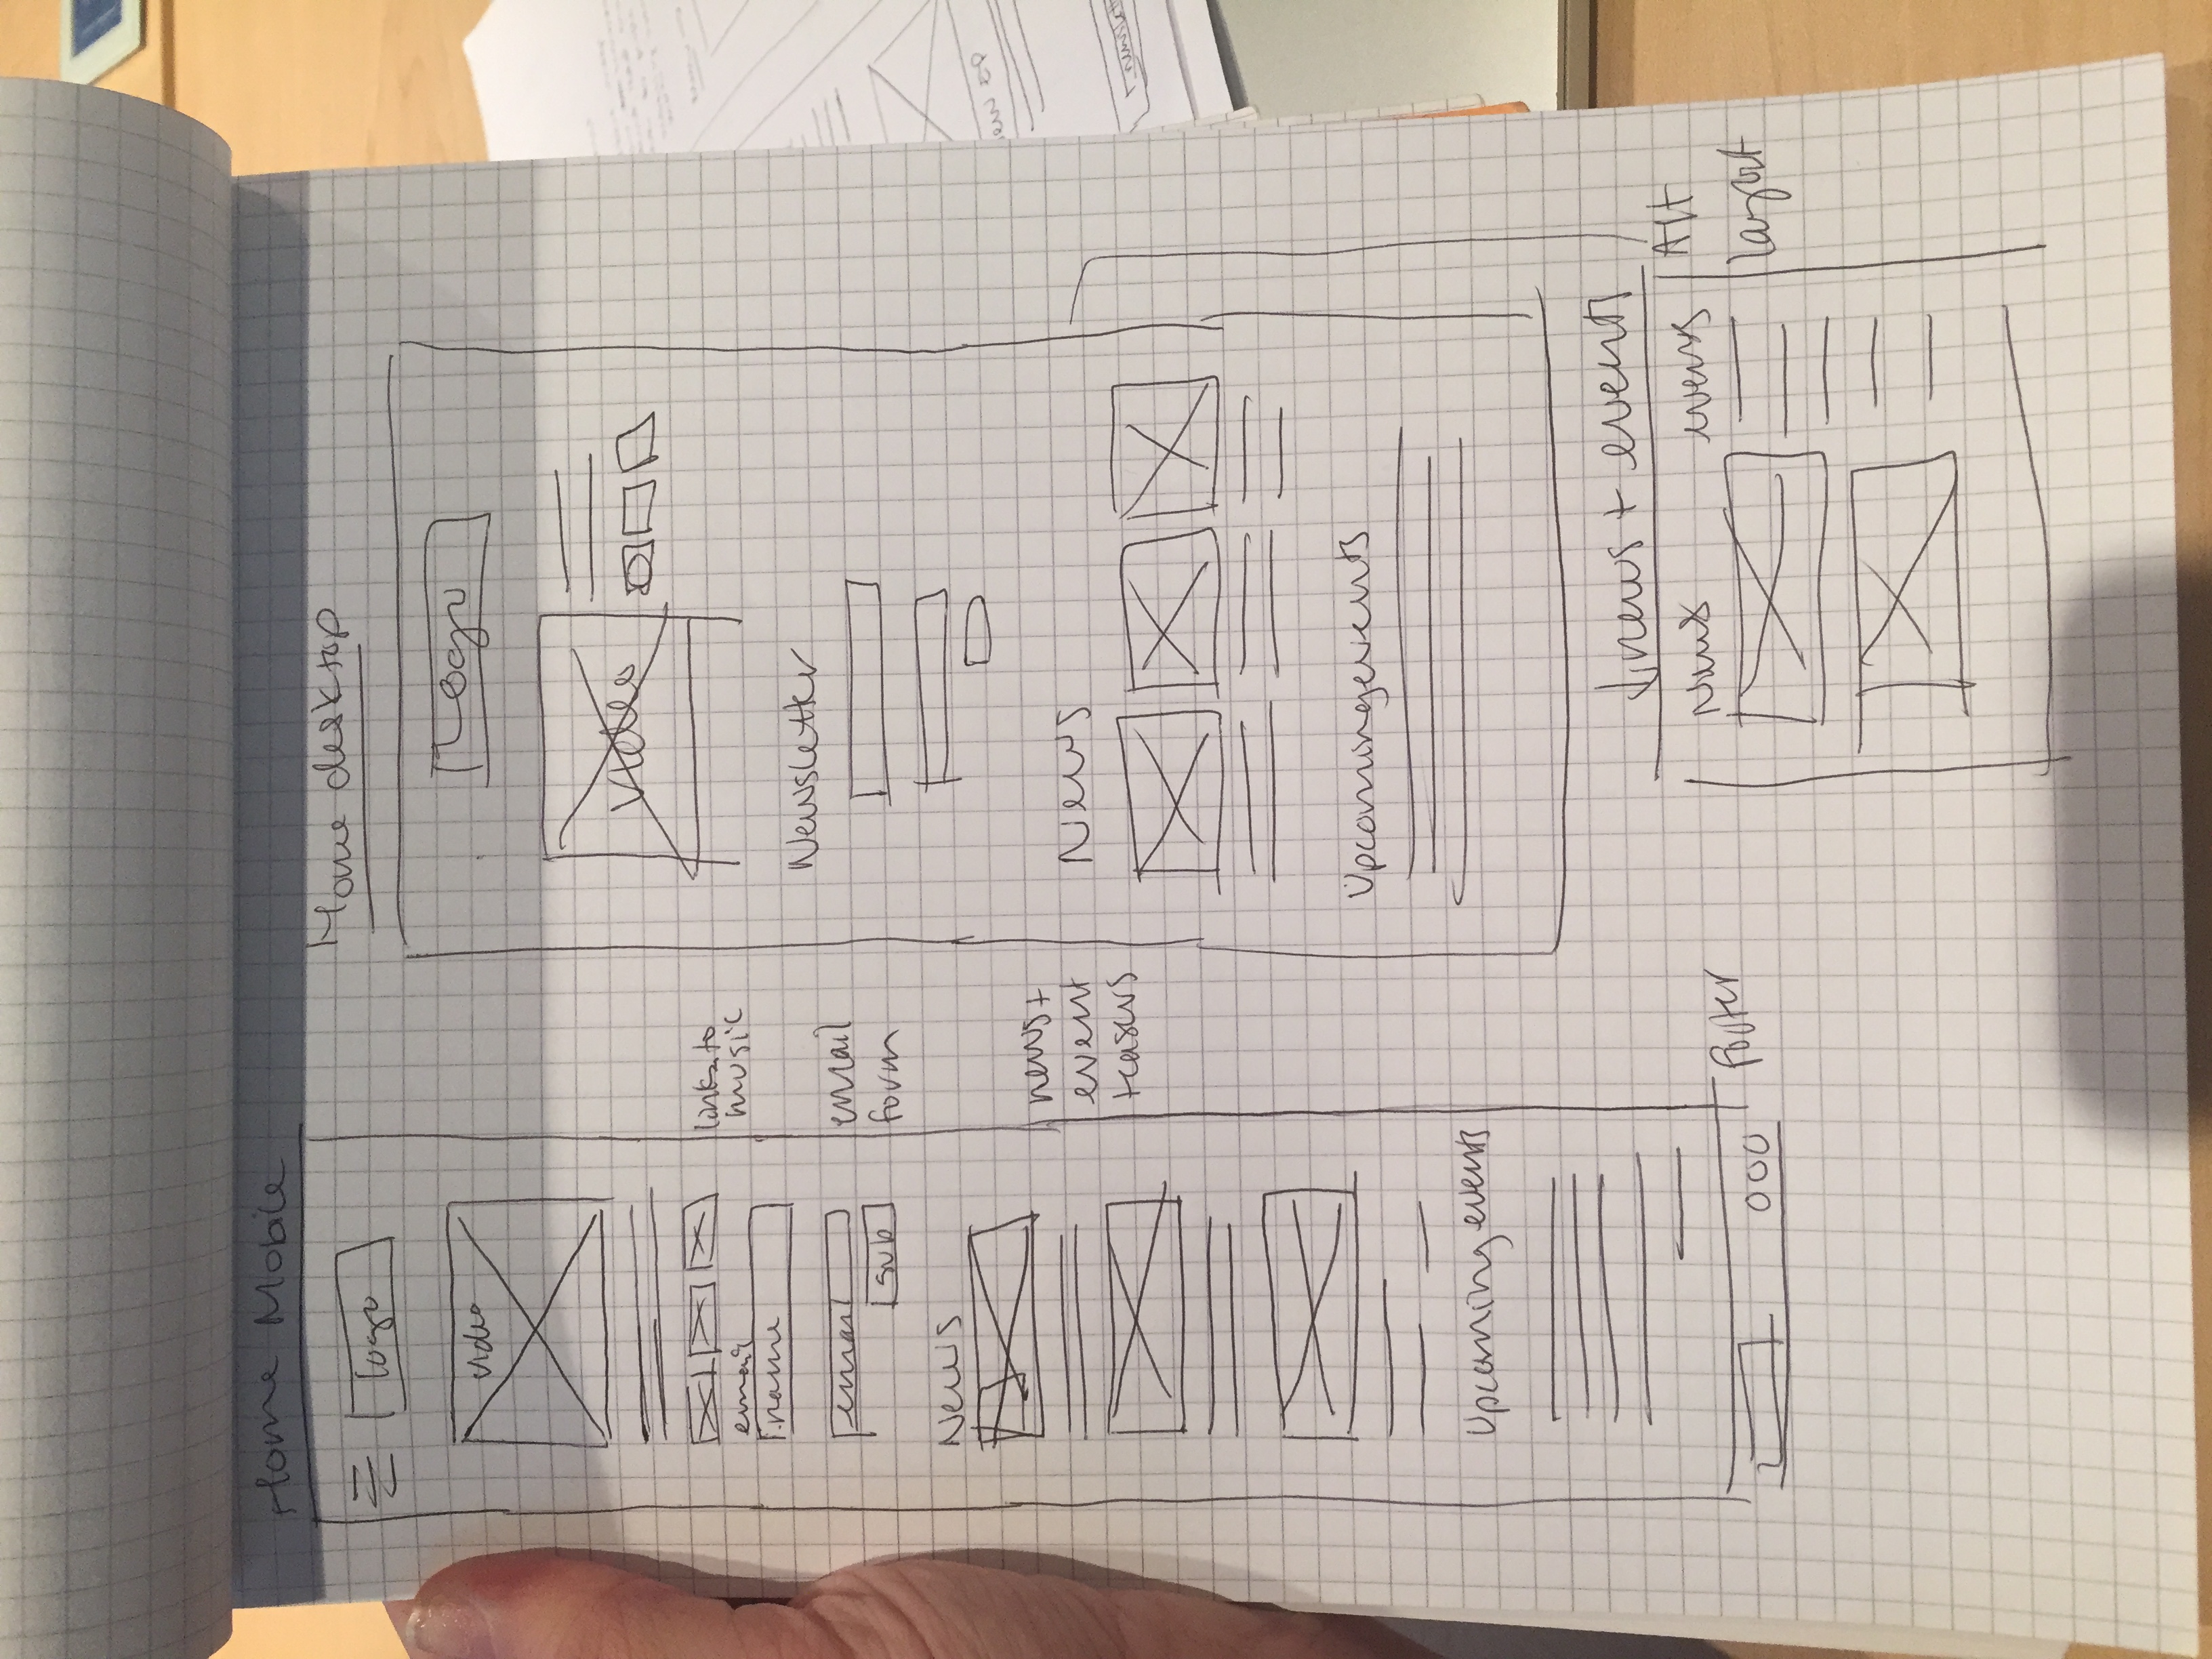 Home Mobile
logo
video
links to
music
email
name
email
sub
email
form
News
news +
event
teasers
Upcoming events
Footer
Home desktop
Logo
Video
Newsletter
News
Upcoming events
↓ news + events
News
events
Alt
layout